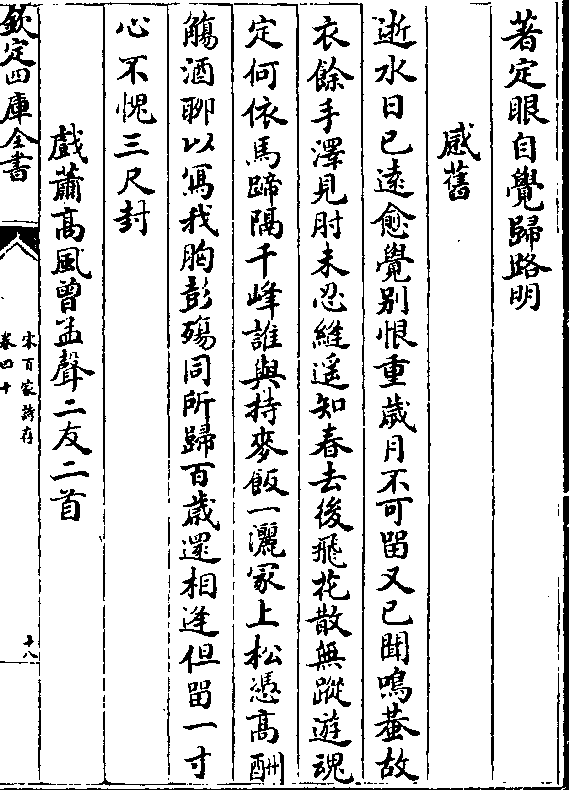 著定眼自覺歸路明
感舊
逝水日已遠愈覺别恨重歲月不可留又已聞鳴蛬故
衣餘手澤見肘未忍縫遥知春去後飛花散無蹤遊魂
定何依馬蹄隔千峰誰與持麥飯一灑冢上松憑髙酬
觴酒聊以寫我胸彭殤同所歸百歲還相逢但留一寸
心不愧三尺封
戲蕭髙風曾孟聲二友二首
欽定四庫全書
宋百家詩存
卷四十
十八